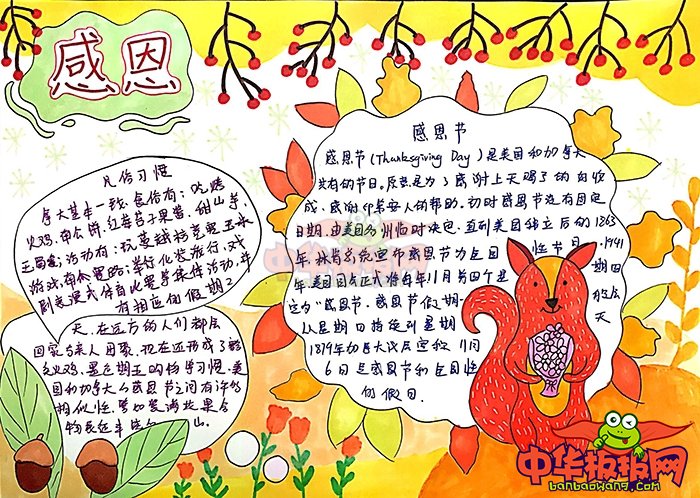 感恩
凡俗习惯
拿大基本一致,食俗有:吃烤
火鸡、南瓜饼、红莓苔子果酱、甜山芋、
玉蜀黍;活动有:玩蔓越桔竞赛、玉米
游戏、南瓜赛跑;举行化装游行、戏
剧表演或体育比赛等集体活动,并
有相应的假期2
天,在远方的人们都会
回家与亲人团聚。现在还形成了
火鸡、黑色期五购物习惯。美
国和加拿大的感恩节之间有许
相似性,
感恩节
感恩节(Thanksgiving Day)是美国和加拿大
共有的节日。原意是为了感谢上天赐予的好收
成、感谢印第安人的帮助。初时感恩节没有固定
日期,由美国各州临时决定,直到美国独立后的1863
年,林肯总统宣布感恩节为全国性节日。1941
年,美国国会正式将每年11月第四个星期四
定为“感恩节。感恩节假期一般会
从星期四持续到星期天
1879年加拿大议会宣称11月
6日是感恩节和全国性
的假日.
中华板报网
banbaowang.com